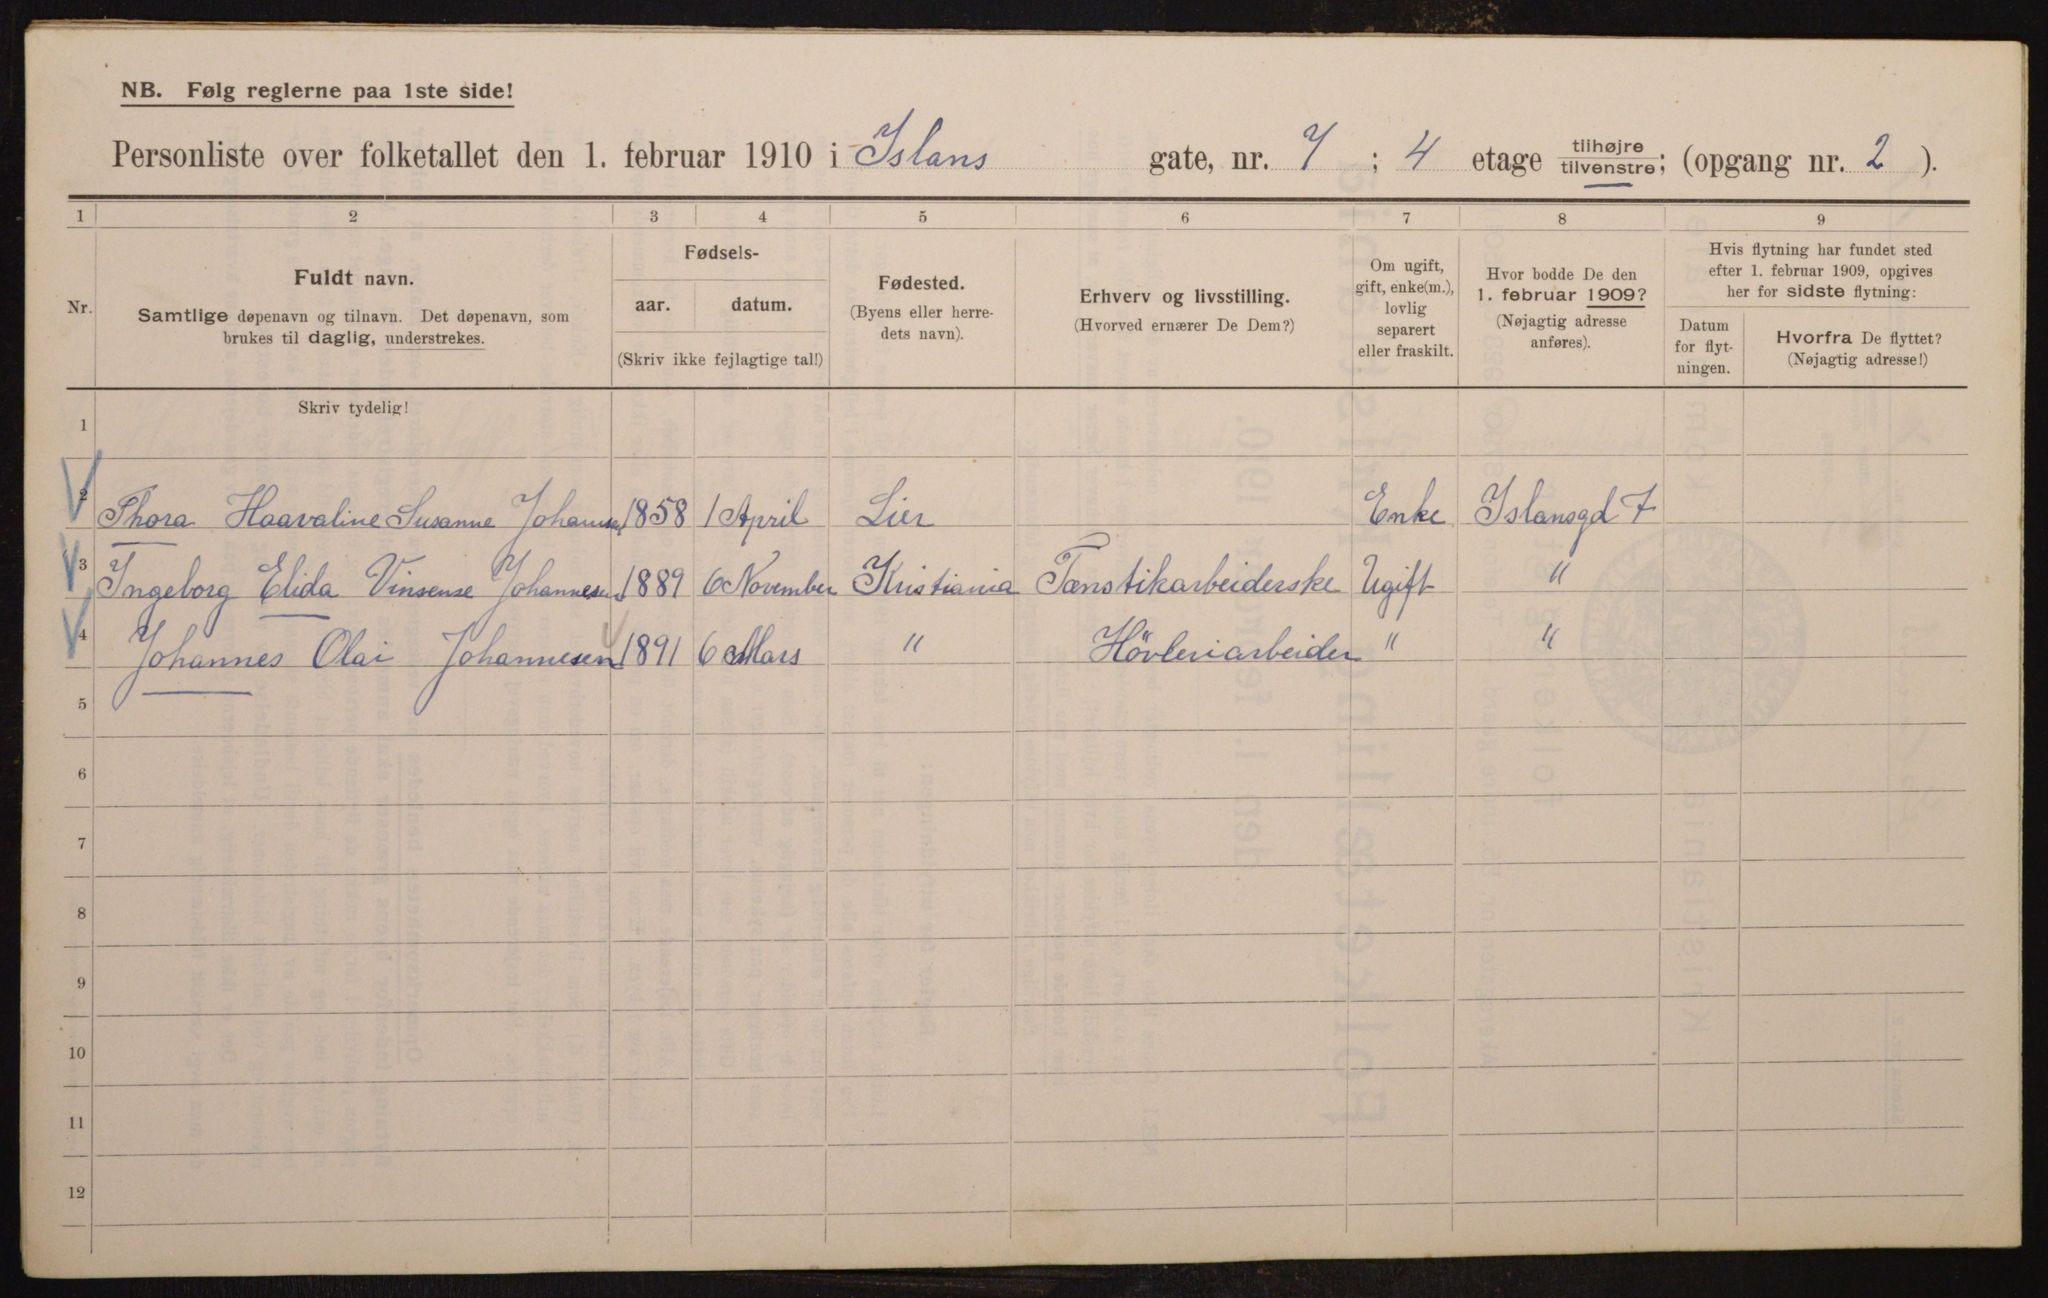 NB. Følg reglerne paa 1ste side!
Personliste over folketallet den 1. februar 1910 i Islans gate, nr. 7 ; 4 etage tilhøjre/tilvenstre; (opgang nr. 2 ).
1 2 3 4 5 6 7 8 9
Nr.
Fuldt navn.
Samtlige døpenavn og tilnavn. Det døpenavn, som
brukes til daglig, understrekes.
Fødsels-
aar. datum.
(Skriv ikke fejlagtige tal!)
Fødested.
(Byens eller herre-
dets navn).
Erhverv og livsstilling.
(Hvorved ernærer De Dem?)
Om ugift,
gift, enke(m.),
lovlig
separert
eller fraskilt.
Hvor bodde De den
1. februar 1909?
(Nøjagtig adresse
anføres).
Hvis flytning har fundet sted
efter 1. februar 1909, opgives
her for sidste flytning:
Datum
for flyt-
ningen.
Hvorfra De flyttet?
(Nøjagtig adresse!)
Skriv tydelig!
1
2 Thora Haavaline Susanne 1858 1 April Lier Enke Islansgd 7
3 Ingeborg Elida Vinsense Johannesen 1889 6 November Kristiania Tænstikarbeiderske Ugift "
4 Johannes Olai Johannesen 1891 6 Mars " Hövleriarbeider " "
5
6
7
8
9
10
11
12